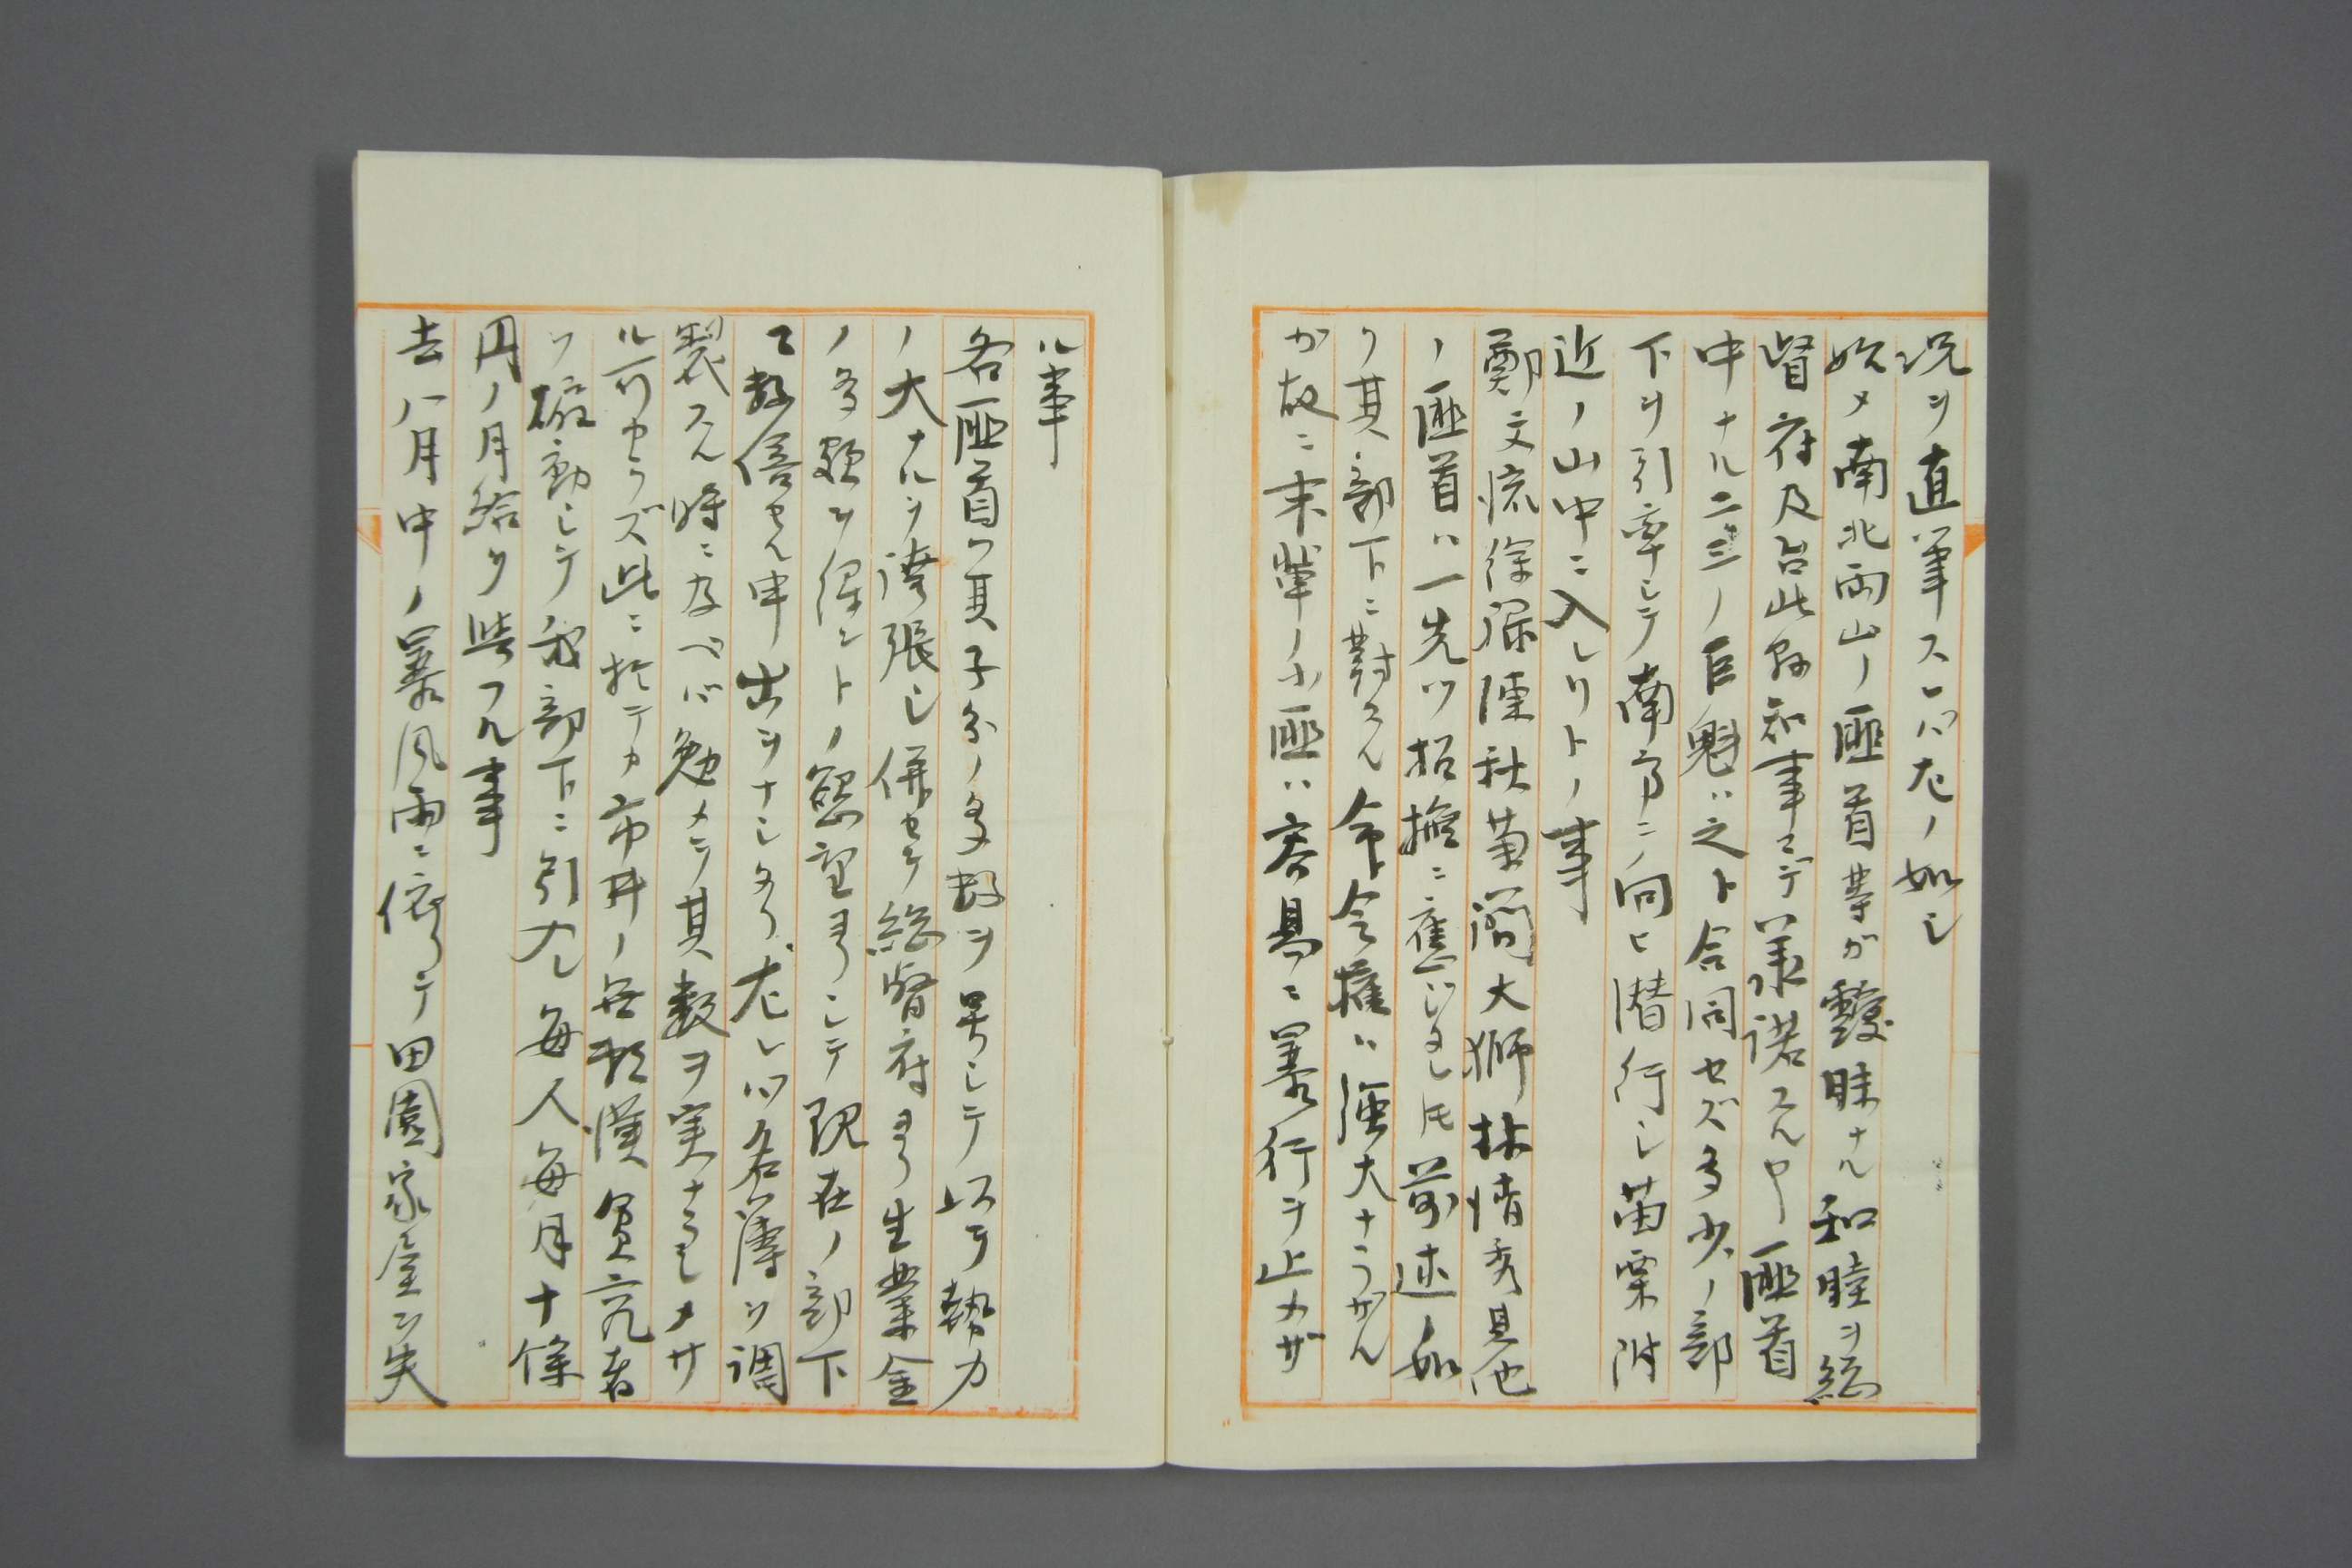 況ヲ直筆スレバ左ノ如シ
始メ南北両山ノ匪首等ガ曖昧ナル和睦ヲ総
督府及台北県知事マデ承諾スルヤ匪首
中ナル二三ノ巨魁ハ之ト合同セズ多少ノ部
下ヲ引率シテ南方ニ向ヒ潜行シ苗栗附
近ノ山中ニ入レリトノ事
鄭文流徐禄陳秋菊簡大獅林清秀其他
ノ匪首ハ一先ツ招撫ニ應ジタレ𪜈前述ノ如
ク其部下ニ對スル命令権ハ強大ナラザル
ガ故ニ末輩ノ小匪ハ容易ニ暴行ヲ止メザ
ル事
各匪首ハ其子分ノ多数ヲ号シテ以テ勢力
ノ大ナルヲ誇張シ併セテ総督府ヨリ生業金
ノ多額ヲ得ントノ慾望ヨリシテ現在ノ部下
ニ数倍セル申出ヲナシタリ左レハ名簿ヲ調
製スル時ニ及ベバ勉メテ其数ヲ実ナラシメサ
ル可カラズ此ニ於テカ市井ノ無頼漢貧窮者
ヲ煽動シテ我部下ニ引入レ毎人毎月十餘
円ノ月給ヲ與フル事
去八月中ノ暴風雨ニ依リテ田園家屋ヲ失